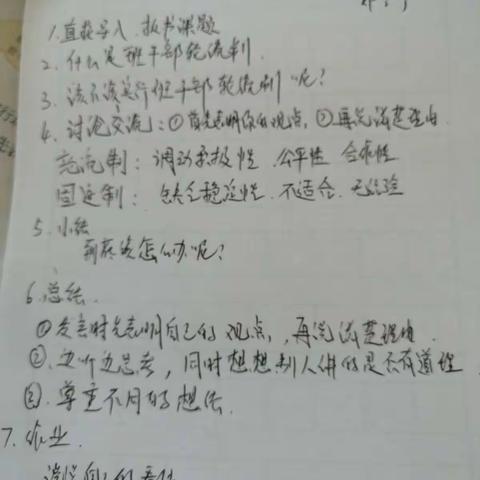 1.直接导入、板书课题
2.什么是班干部轮流制
3.该不该实行班干部轮流制呢?
4.讨论交流:①首先表明你的观点,②再说清楚理由.
轮流制:调动积极性 公平性 合作性
固定制:缺乏稳定性.不适合.无经验
5.小结
到底该怎么办呢?
6.总结.
①发言时先表明自己的观点,再说清楚理由.
②.边听边思考,同时想想别人讲的是否有道理
③.尊重不同的想法.
7.作业.